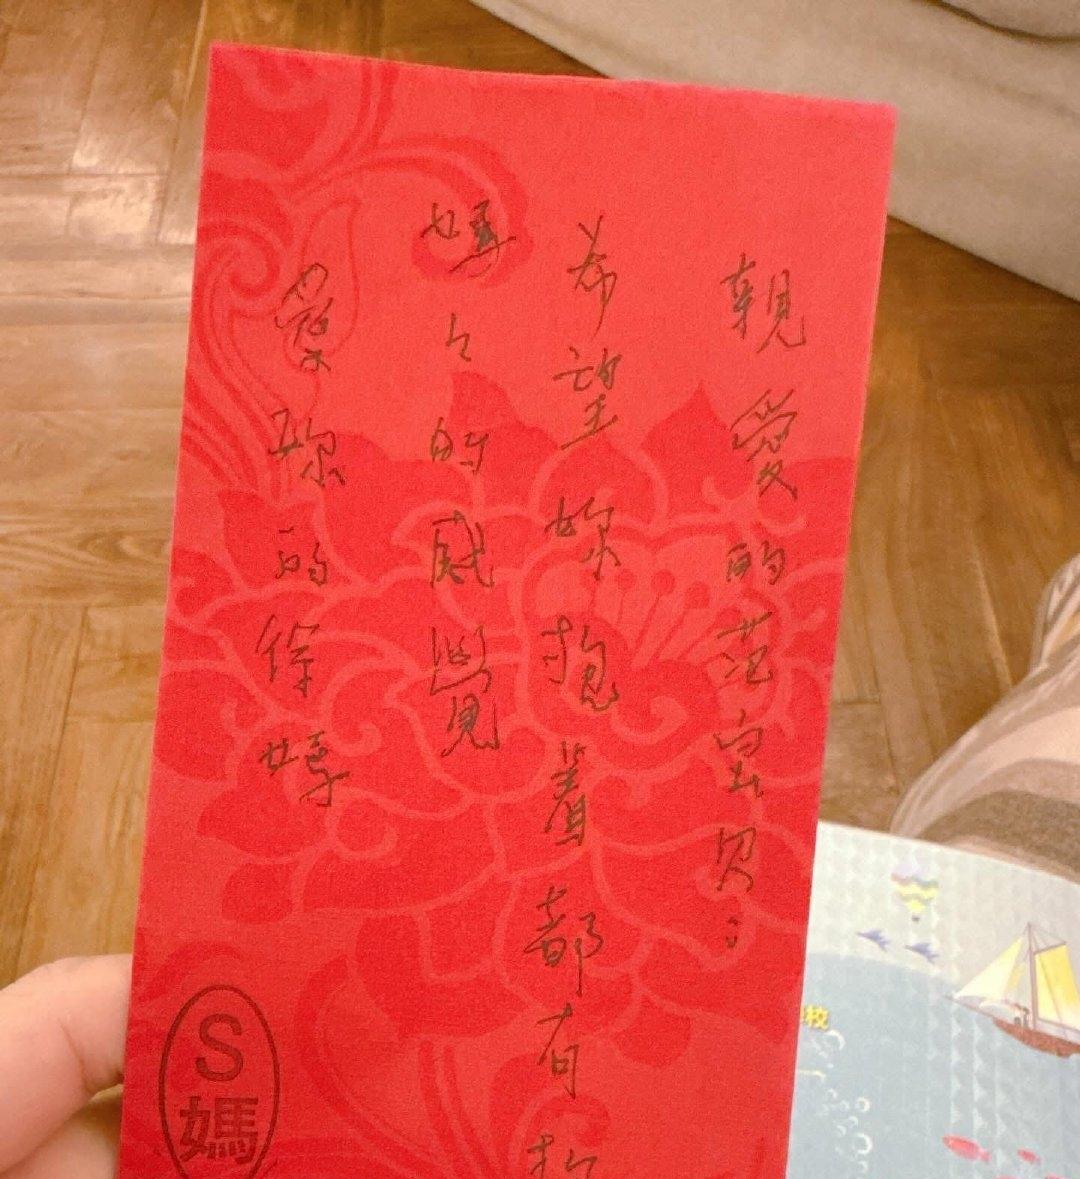 親愛的范宝貝：
希望妳抱著都有
媽々的感覺
愛妳的徐媽
S
媽
校